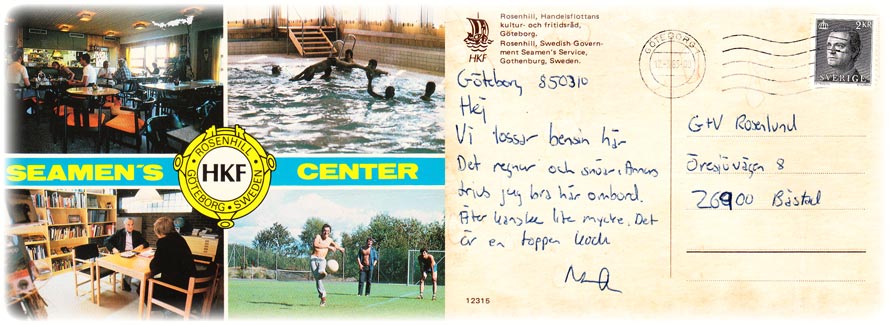 SEAMEN'S CENTER
ROSENHILL
HKF
GÖTEBORG · SWEDEN
HKF
Rosenhill, Handelsflottans
kultur- och fritidsråd,
Göteborg.
Rosenhill, Swedish Govern-
ment Seamen's Service,
Gothenburg, Sweden.
GÖTEBORG
2 KR
SVERIGE
Göteborg 850310
Hej
Vi lossar bensin här
Det regnar och snöar. Annars
trivs jag bra här ombord.
Äter kanske lite mycke. Det
är en toppen kock
G+V Rosenlund
Öresjövägen 8
26900 Båstad
12315